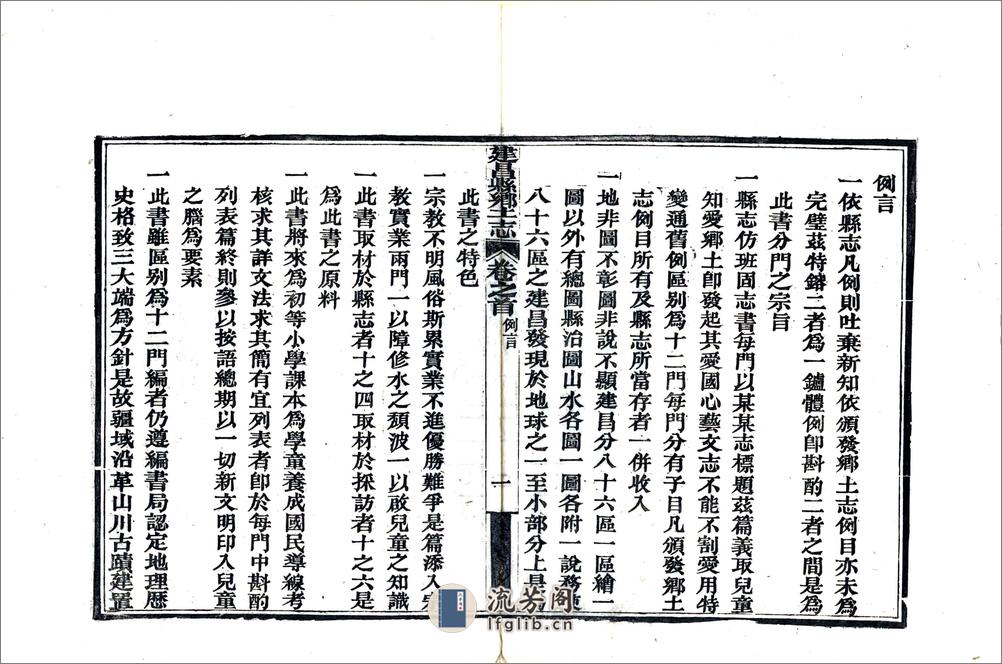 例言
一依縣志凡例則吐棄新知依頒發鄉土志例目亦未為
完璧茲特鎔二者為一鑪體例卽斟酌二者之間是為
此書分門之宗旨
一縣志仿班固志書每門以某某志標題茲篇義取兒童
知愛鄉土卽發起其愛國心藝文志不能不割愛用特
變通舊例區别為十二門每門分有子目凡頒發鄉土
志例目所有及縣志所當存者一併收入
一地非圖不彰圖非說不顯建昌分八十六區一區繪一
圖以外有總圖縣治圖山水各圖一圖各附一說務使
八十六區之建昌發現於地球之一至小部分上是
此書之特色
建昌縣鄉土志 卷之首 例言 一
一宗教不明風俗斯累實業不進優勝難爭是篇添入宗
教實業兩門一以障修水之頹波一以啟兒童之知識
一此書取材於縣志者十之四取材於採訪者十之六是
為此書之原料
一此書將來為初等小學課本為學童養成國民導線考
核求其詳文法求其簡有宜列表者卽於每門中斟酌
列表篇終則參以按語總期以一切新文明印入兒童
之腦為要素
一此書雖區别為十二門編者仍遵編書局認定地理歷
史格致三大端為方針是故疆域沿革山川古蹟建置
流芳阁
lfglib.cn